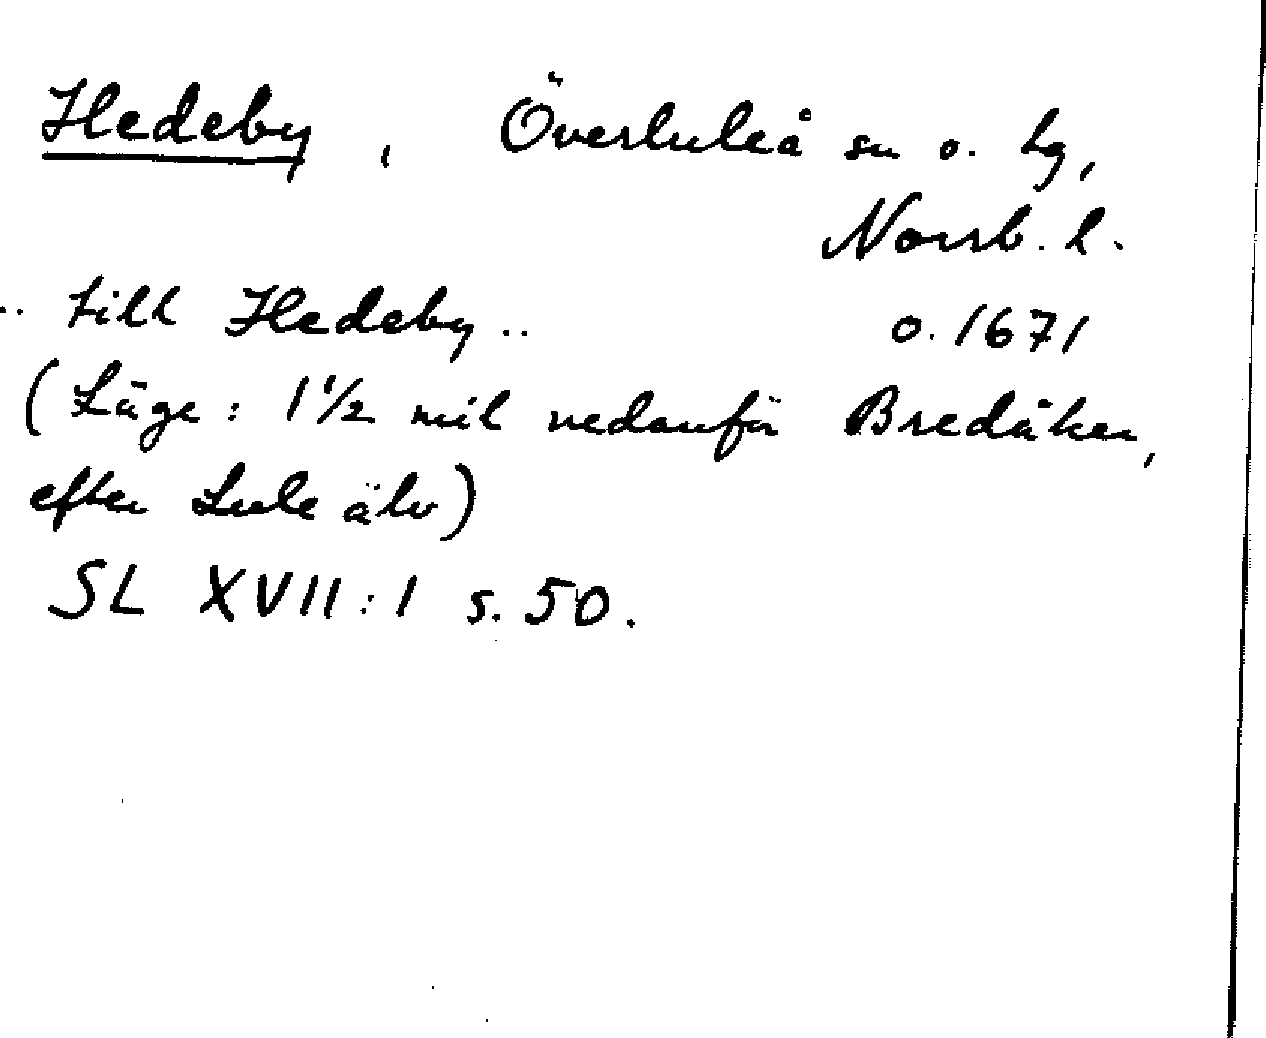 Hedeby, Överluleå sn o. tg,
Norrb. l.
.. till Hedeby .. o. 1671
(Läge: 1 1/2 mil nedanför Bredåker,
efter Lule älv)
SL XVII:1 s. 50.